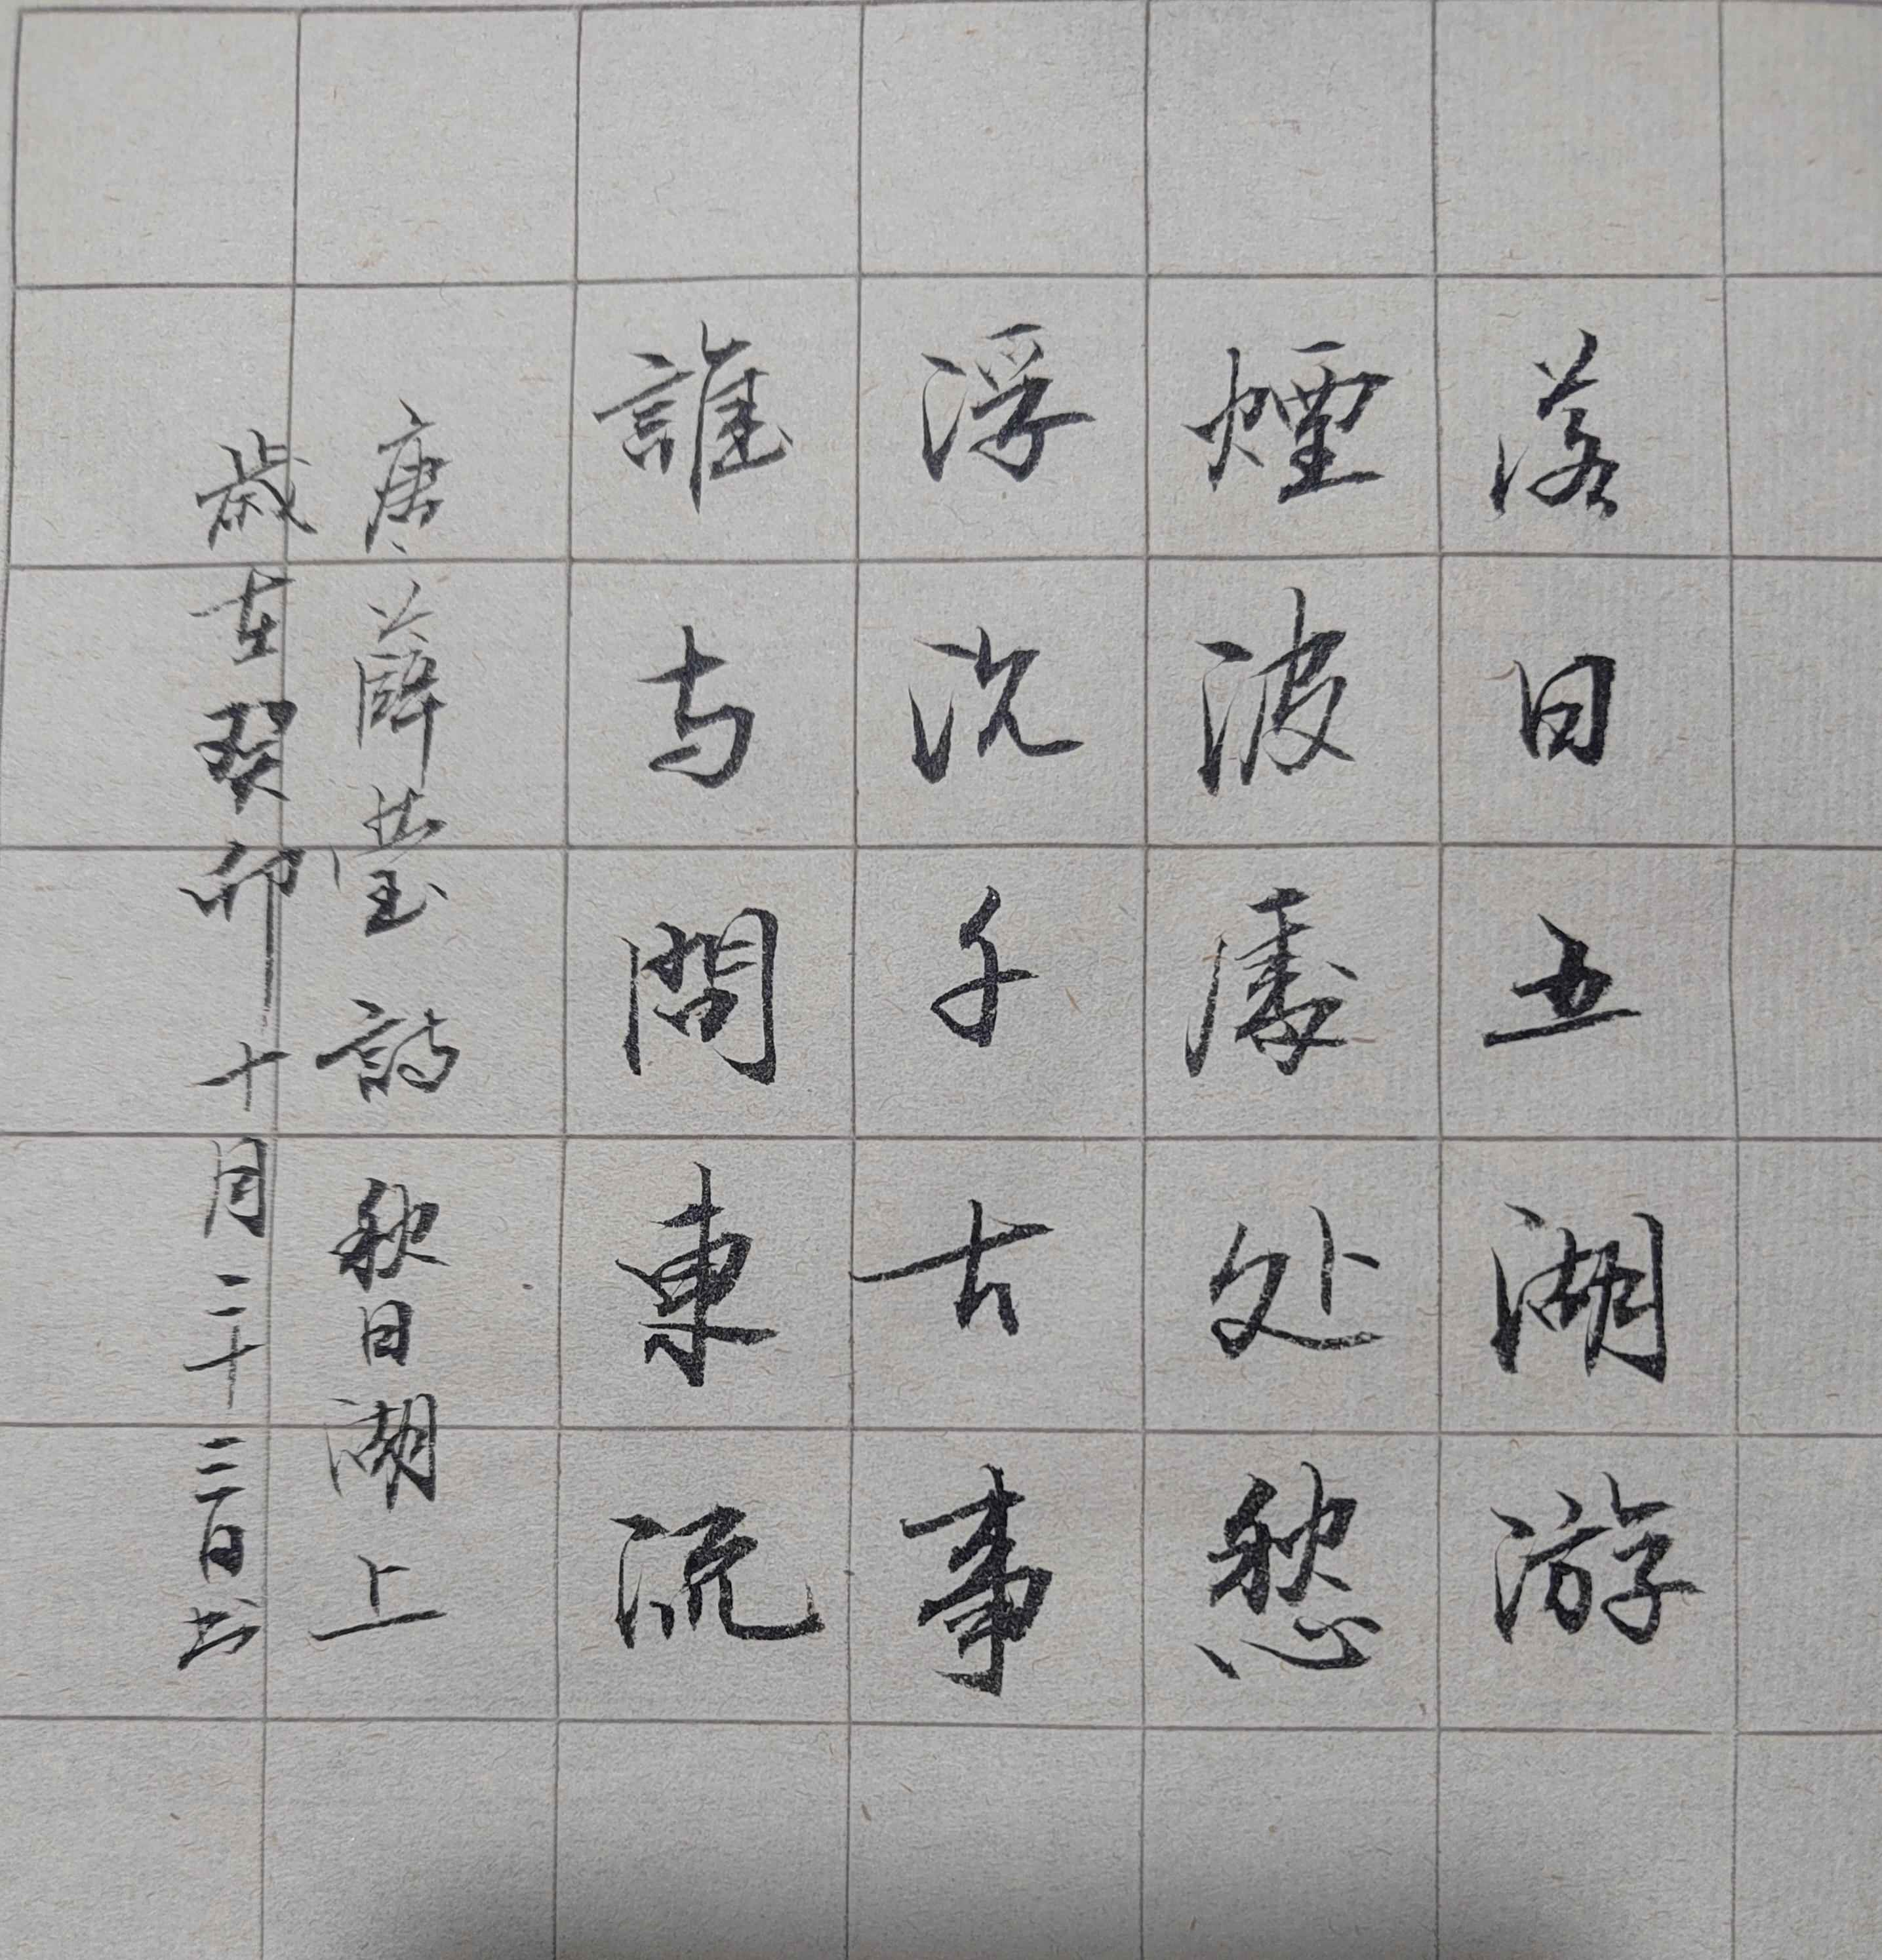 落日五湖游
煙波處处愁
浮沉千古事
誰与問東流
唐薛莹詩秋日湖上
歲在癸卯十月二十三日书